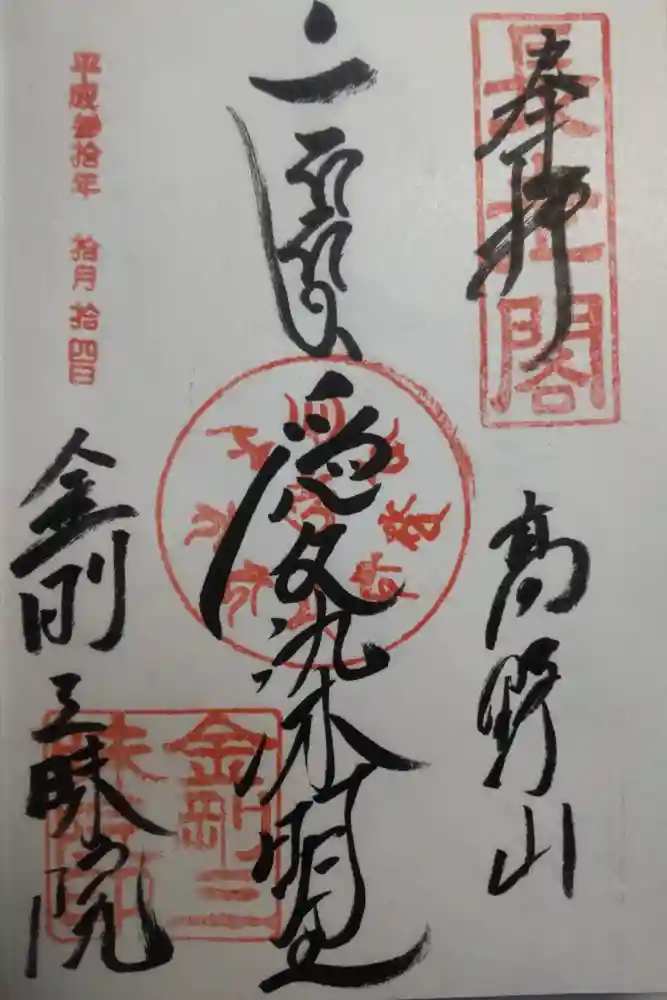 奉拝
高野山
愛染明王
平成参拾年 拾月 拾四日
金剛三昧院
金剛三
昧院印